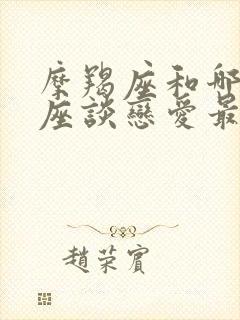 摩羯座和哪
座談戀愛最
趙荣賓